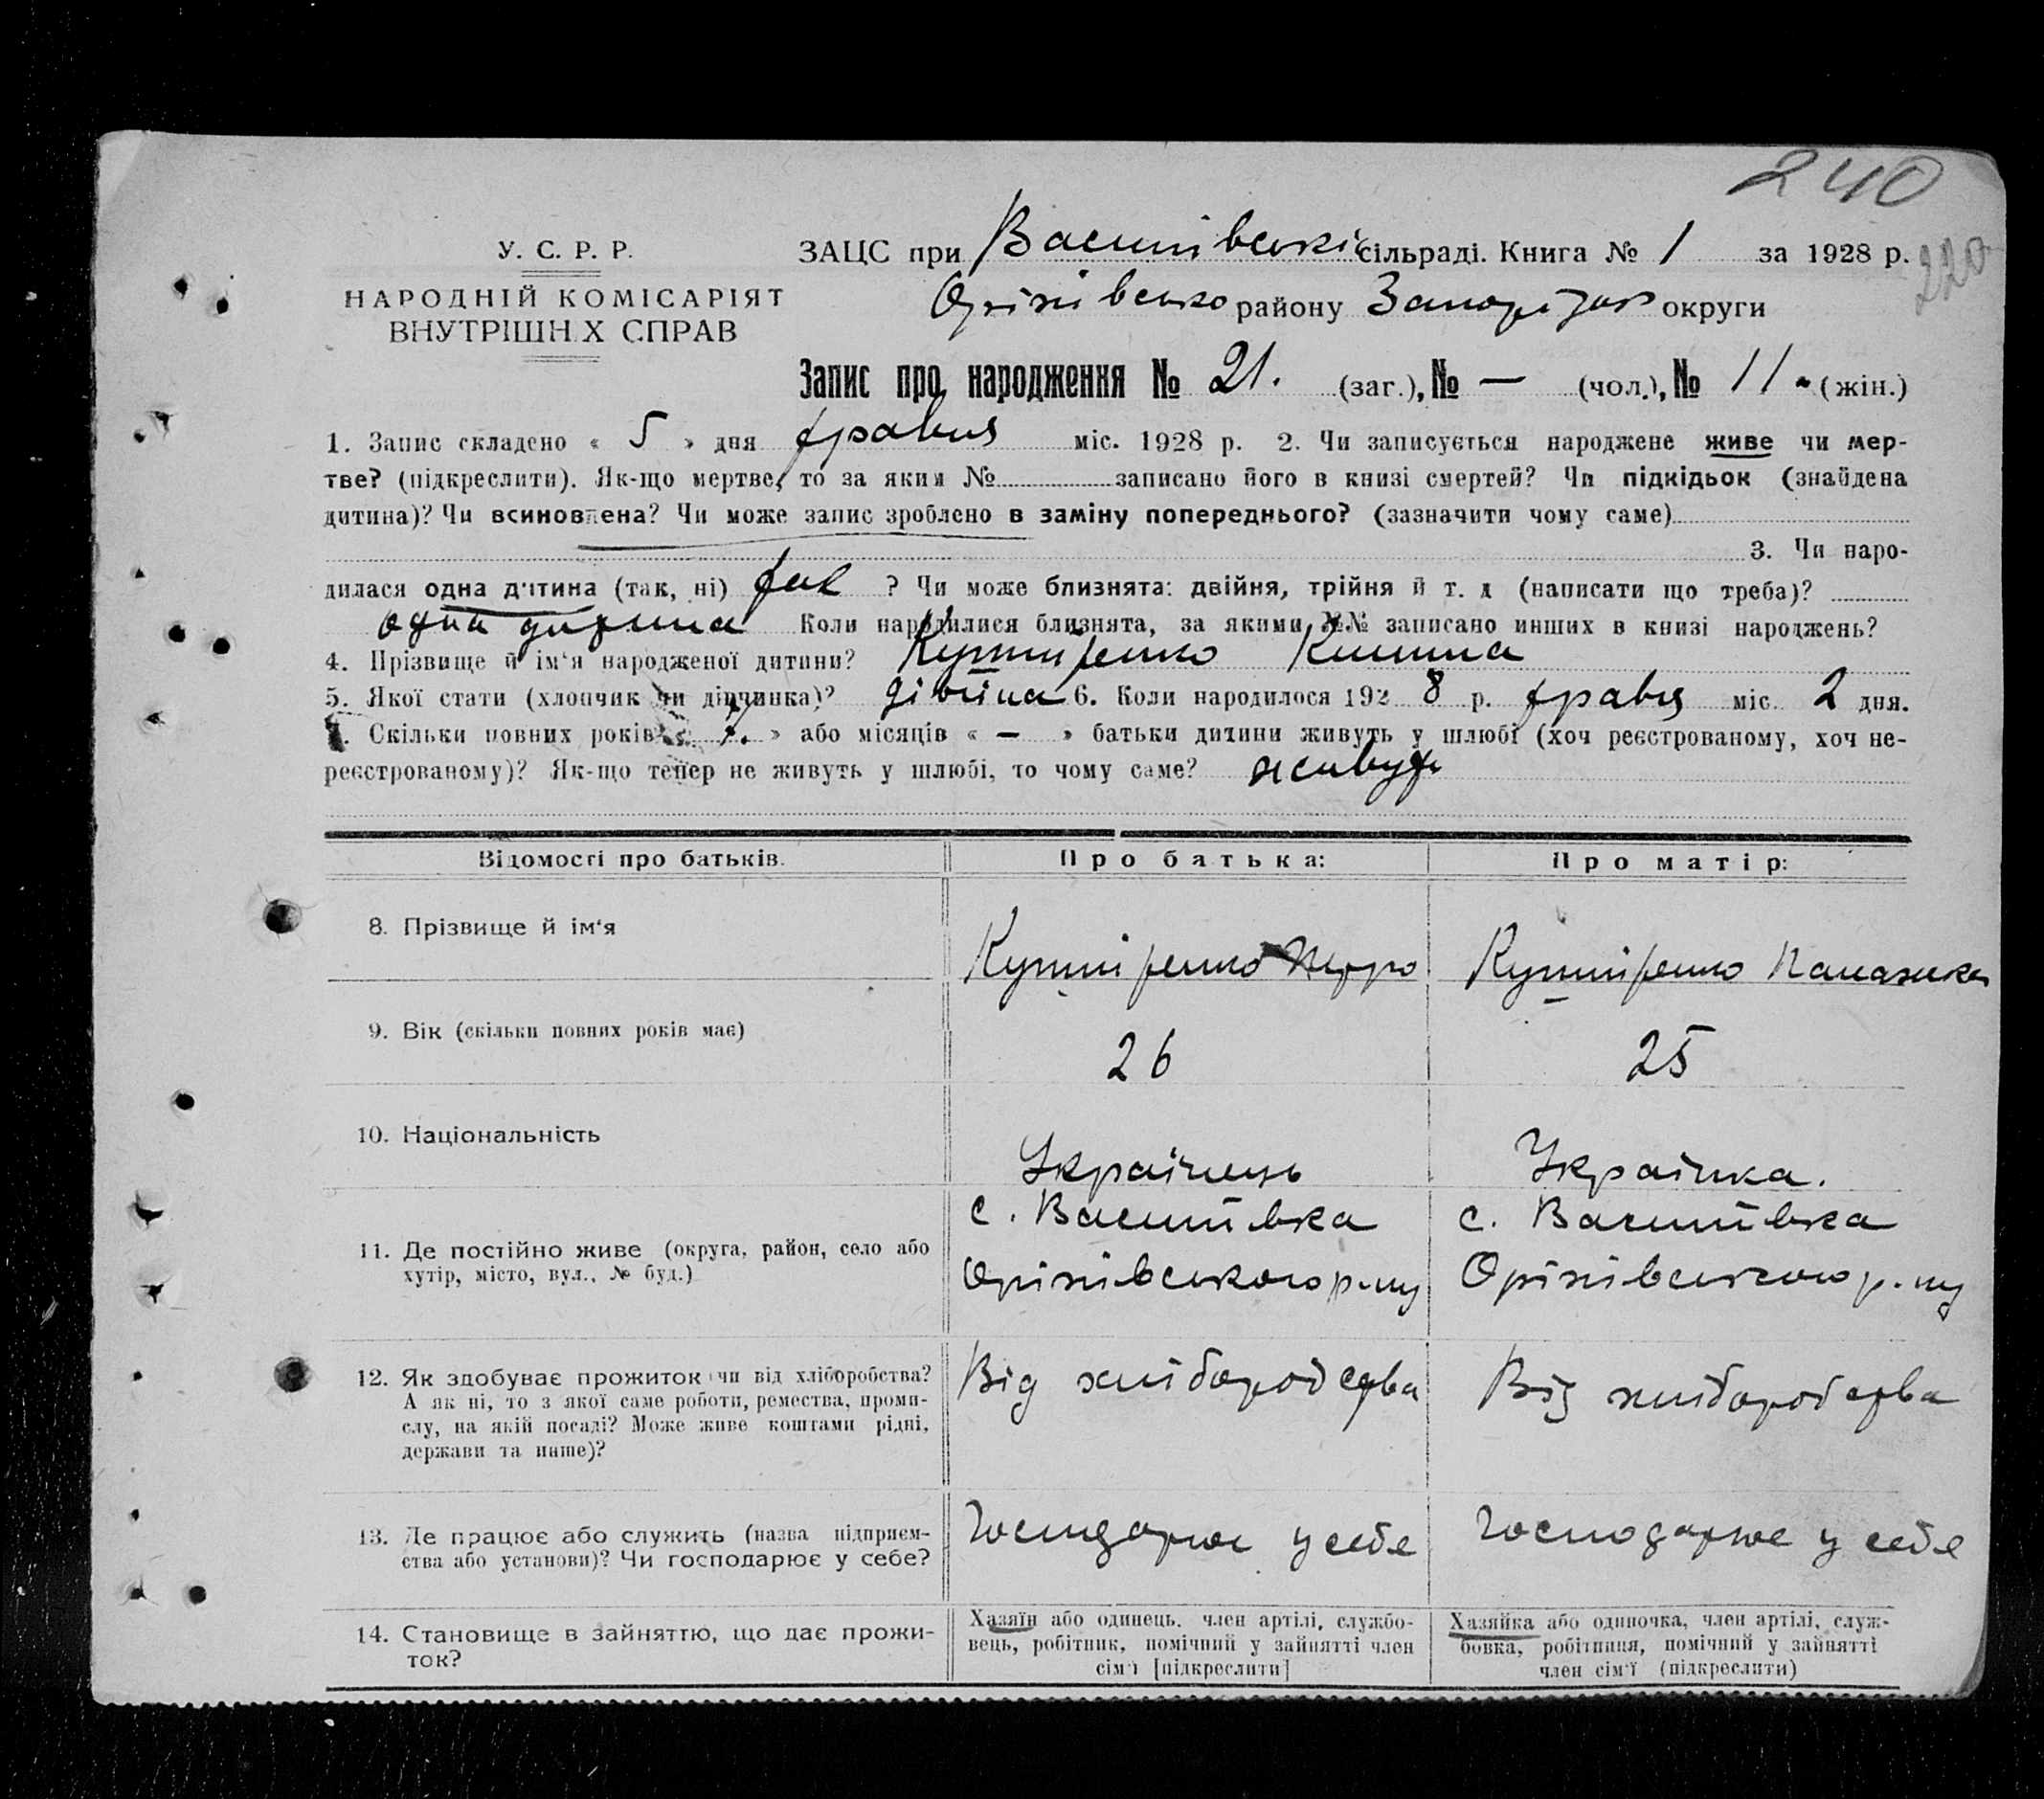 240
У. С. Р. Р.
НАРОДНІЙ КОМІСАРІЯТ
ВНУТРІШН.Х СПРАВ
220
ЗАЦС при Василівські сільраді. Книга № 1 за 1928 р.
Оріхівсько району Запоріжж округи
Запис про народження № 21. (заг.), № — (чол.), № 11 (жін.)
1. Запис складено « 5 » дня травня міс. 1928 р. 2. Чи записується народжене живе чи мер-
тве? (підкреслити). Як-що мертве, то за яким № записано його в книзі смертей? Чи підкідьок (знайдена
дитина)? Чи всиновлена? Чи може запис зроблено в заміну попереднього? (зазначити чому саме)
3. Чи наро-
дилася одна дитина (так, ні) так ? Чи може близнята: двійня, трійня й т. д (написати що треба)?
одна дитина Коли народилися близнята, за якими №№ записано инших в книзі народжень?
4. Прізвище й ім‘я народженої дитини? Кушніренко
5. Якої стати (хлопчик чи дівчинка)? дівчина 6. Коли народилося 192 8 р. травня міс. 2 дня.
7. Скільки повних років « 7. » або місяців « — » батьки дитини живуть у шлюбі (хоч реєстрованому, хоч не-
реєстрованому)? Як-що тепер не живуть у шлюбі, то чому саме? живуть
Відомості про батьків.
Про батька:
Про матір:
8. Прізвище й ім‘я
Кушніренко Петро
Кушніренко Панажка
9. Вік (скільки повних років має)
26
25
10. Національність
Українець
Українка.
11. Де постійно живе (округа, район, село або
хутір, місто, вул., № буд.)
с. Василівка
Оріхівського р-ну
с. Василівка
Оріхівського р-ну
12. Як здобуває прожиток чи від хліборобства?
А як ні, то з якої саме роботи, ремества, проми-
слу, на якій посаді? Може живе коштами рідні,
держави та инше)?
Від хліборобства
Від хліборобства
13. Де працює або служить (назва підприєм-
ства або установи)? Чи господарює у себе?
Господарює у себе
Господарює у себе
14. Становище в зайняттю, що дає прожи-
ток?
Хазяїн або одинець. член артілі, службо-
вець, робітник, помічний у зайнятті член
сім‘ї [підкреслити]
Хазяйка або одиночка, член артілі, служ-
бовка, робітниця, помічний у зайнятті
член сім‘ї (підкреслити)